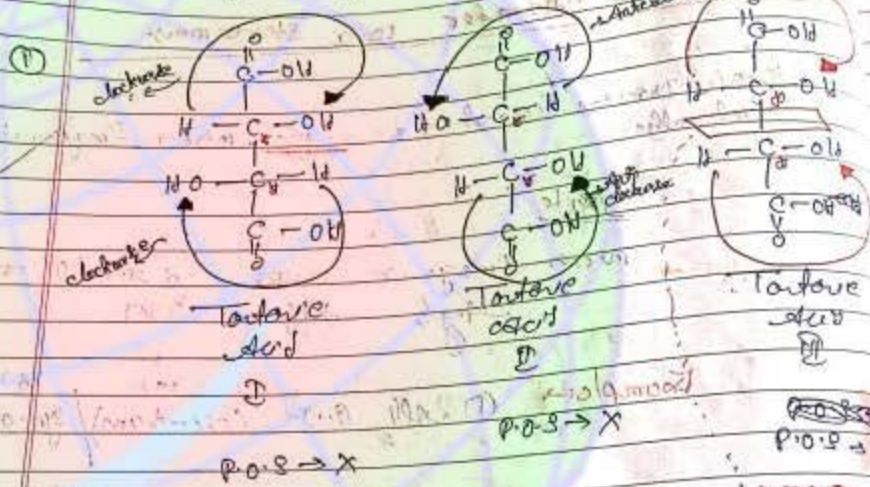 ①
O
||
C – OH
clockwise
H – C* – OH
HO – C* – H
C – OH
||
O
clockwise
Tartaric
Acid
I
P.O.S → X
O
||
C – OH
HO – C* – H
H – C* – OH
Anti
clockwise
C – OH
||
O
Tartaric
acid
II
P.O.S → X
||
C – OH
H – C* – OH
H – C* – OH
C – OH
||
O
Tartaric
Acid
III
P.O.S →